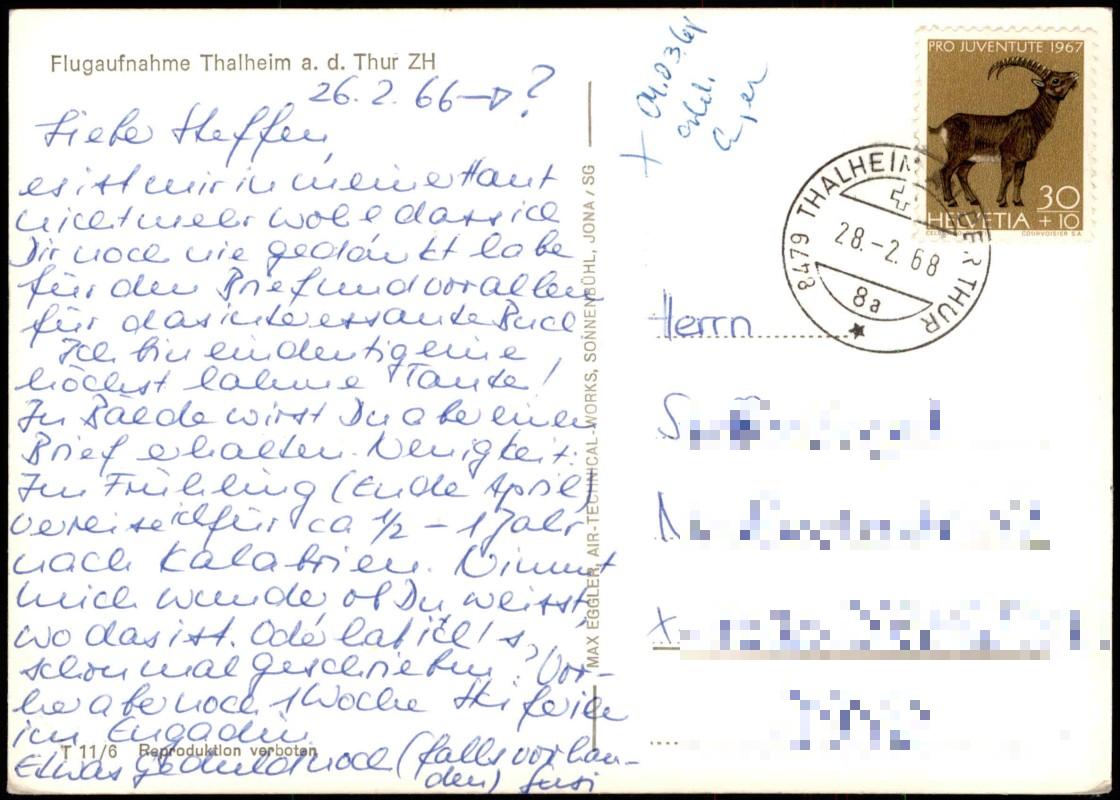 Flugaufnahme Thalheim a. d. Thur ZH
26.2.66 → ?
Liebe Steffen,
es ist mir in meiner Haut
nicht mehr wohl dass ich
Dir noch nie gedankt habe
für den Brief und vor allem
für das interessante Buch
Ich bin eindeutig eine
höchst lahme Tante!
In Bälde wirst Du aber einen
Brief erhalten. Neuigkeit:
Im Frühling (Ende April)
verreise ich für ca 1/2 – 1 Jahr
nach Kalabrien. Nimmt
mich wunder, ob Du weisst,
wo das ist. Ode hab ich's
schon mal geschrieben? Vor-
her aber noch 1 Woche Skiferien
im Engadin.
T 11/6 Reproduktion verboten
Etwas Geduld noch (falls vorhan-
den) Susi
MAX EGGLER, AIR-TECHNICAL-WORKS, SONNENBÜHL, JONA / SG
PRO JUVENTUTE 1967
30
HELVETIA +10
COURVOISIER S.A.
8479 THALHEIM AN DER THUR
28.-2.68
8a
Herrn